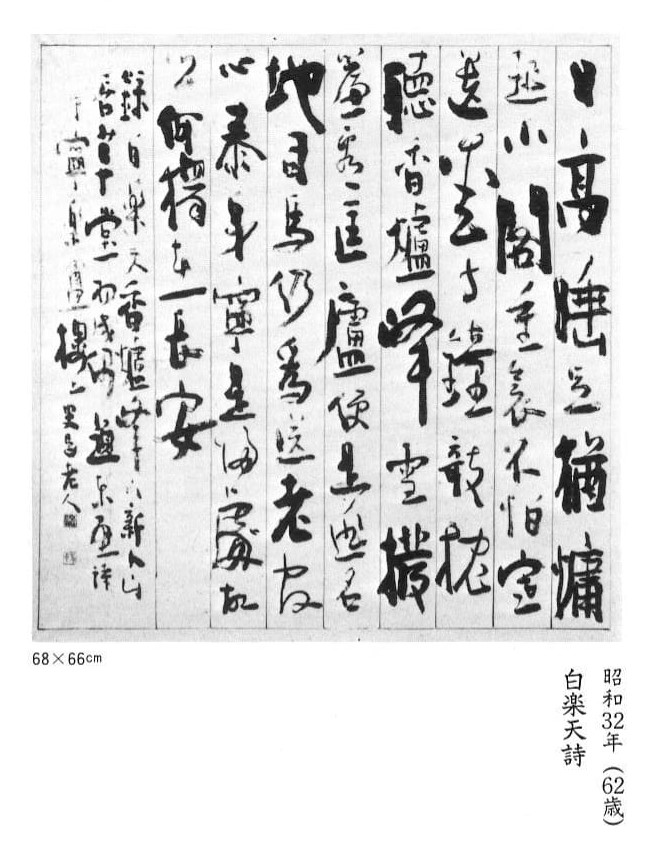 日高睡足猶慵
起小閣重衾不怕寒
遺愛寺鐘欹枕
聽香爐峯雪撥
簾看匡廬便是逃名
地司馬仍為送老官
心泰身寧是歸處故
鄉何獨在長安
錄白樂天香爐峯下新卜山
居草堂初成偶題東壁詩
于寧樂樓上老人
68×66cm
昭和32年(62歳)
白楽天詩